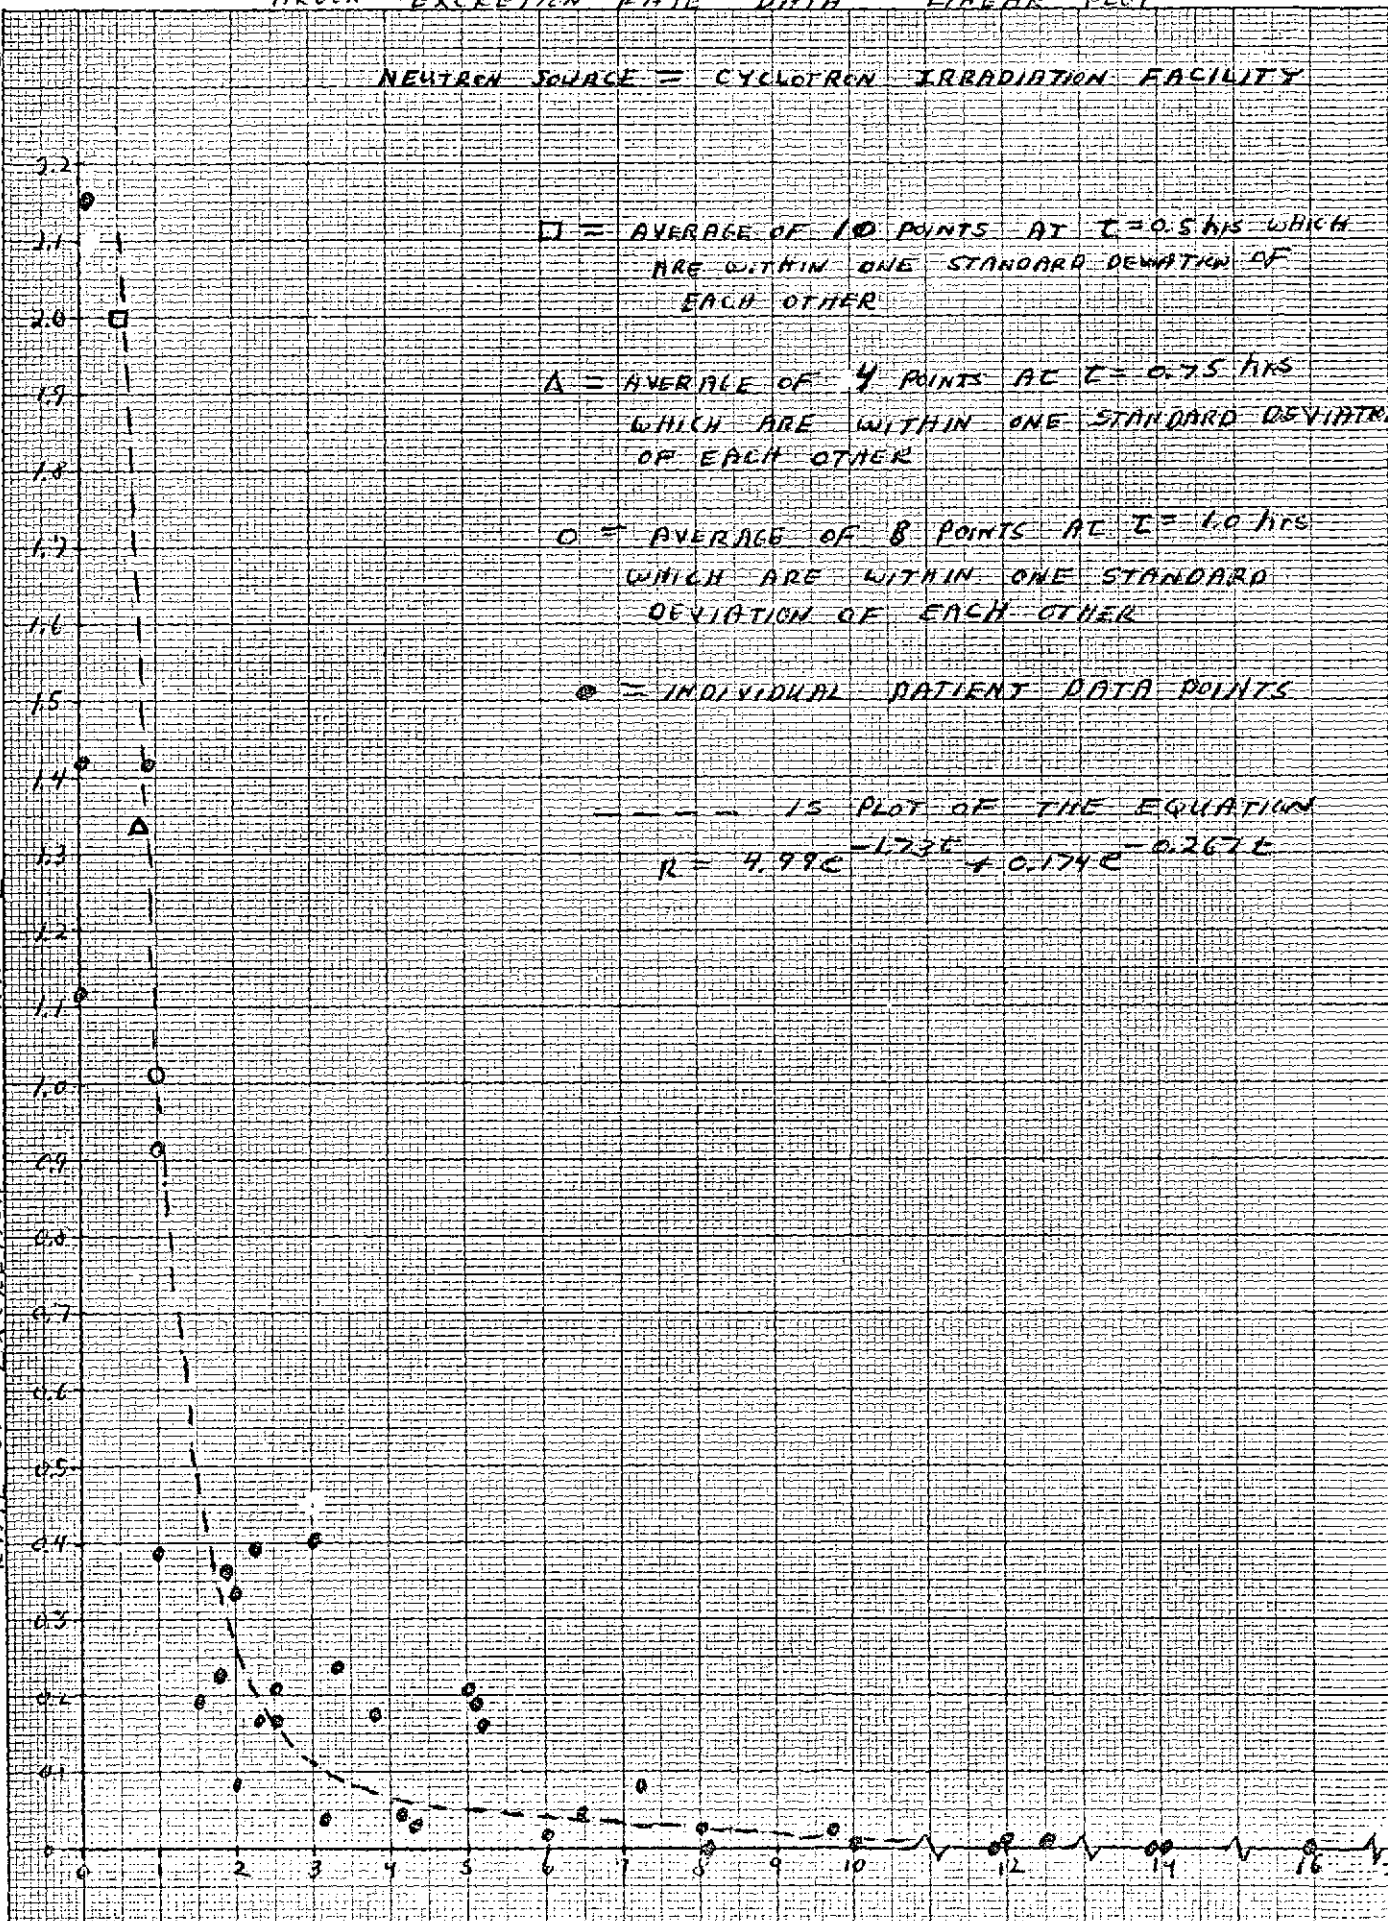 EXCRETION RATE DATA LINEAR PLOT
NEUTRON SOURCE = CYCLOTRON IRRADIATION FACILITY
□ = AVERAGE OF 10 POINTS AT t=0.5 hrs WHICH
ARE WITHIN ONE STANDARD DEVIATION OF
EACH OTHER
Δ = AVERAGE OF 4 POINTS AT t=0.75 hrs
WHICH ARE WITHIN ONE STANDARD DEVIATION
OF EACH OTHER
O = AVERAGE OF 8 POINTS AT t=1.0 hrs
WHICH ARE WITHIN ONE STANDARD
DEVIATION OF EACH OTHER
● = INDIVIDUAL PATIENT DATA POINTS
---- IS PLOT OF THE EQUATION
R = 4.99e^-1.73t + 0.174e^-0.267t
2.2
2.1
2.0
1.9
1.8
1.7
1.6
1.5
1.4
1.3
1.2
1.1
1.0
0.9
0.8
0.7
0.6
0.5
0.4
0.3
0.2
0.1
0
0 1 2 3 4 5 6 7 8 9 10 12 14 16